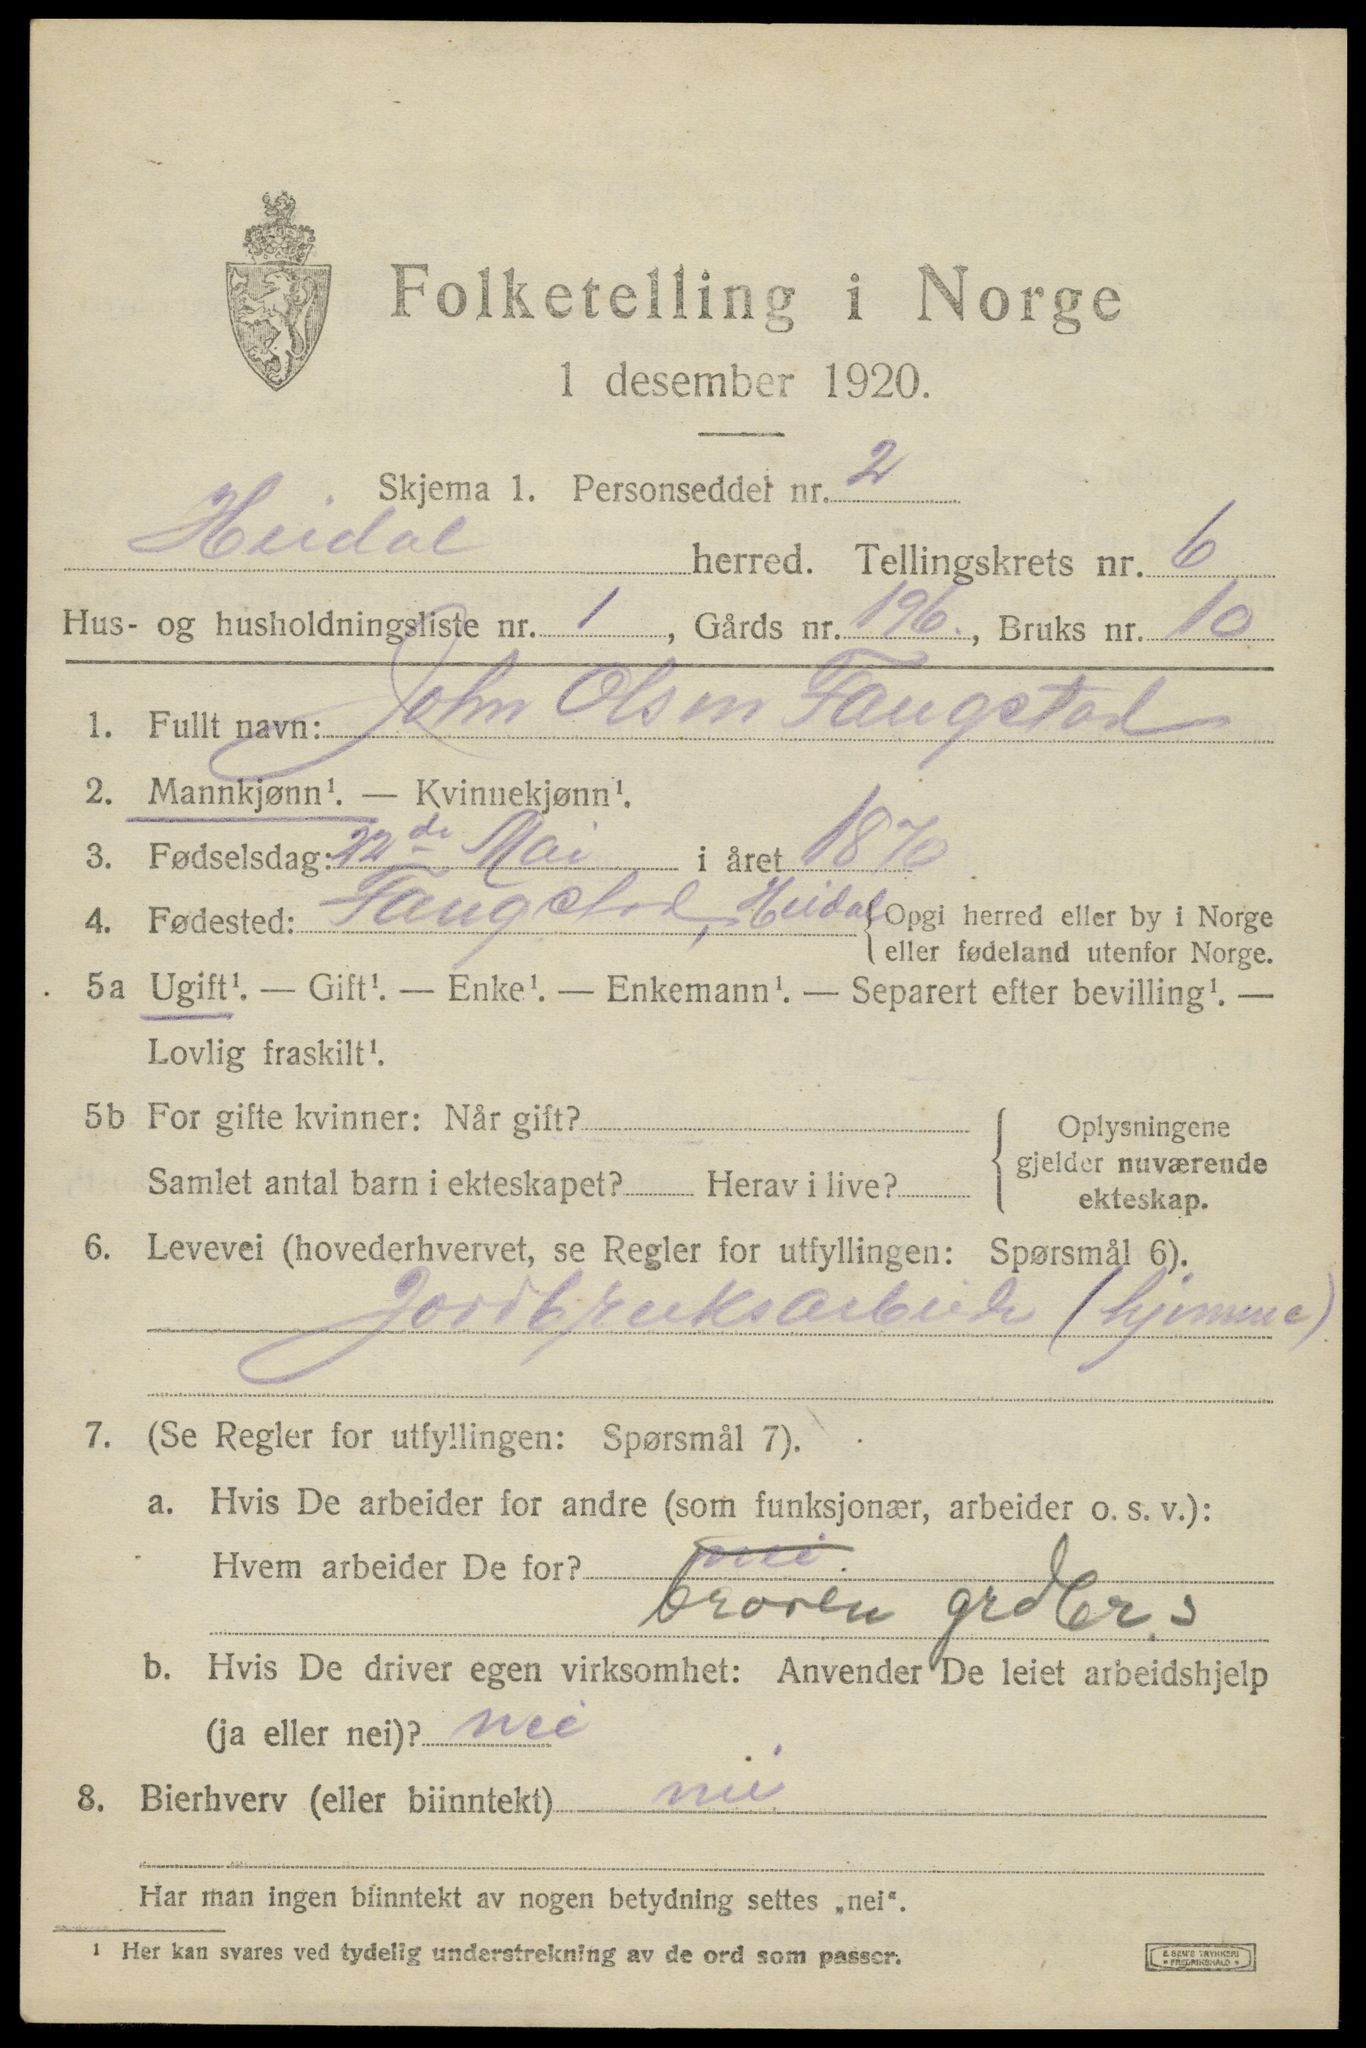 Folketelling i Norge
1 desember 1920.
Skjema 1. Personseddel nr. 2
Heidal herred. Tellingskrets nr. 6
Hus- og husholdningsliste nr. 1, Gårds nr. 196., Bruks nr. 10
1. Fullt navn: John Olsen Faugstad
2. Mannkjønn¹. — Kvinnekjønn¹.
3. Fødselsdag: 22de Mai i året 1870
4. Fødested: Faugstad, Heidal { Opgi herred eller by i Norge
eller fødeland utenfor Norge.
5a Ugift¹. — Gift¹. — Enke¹. — Enkemann¹. — Separert efter bevilling¹. —
Lovlig fraskilt¹.
5b For gifte kvinner: Når gift?
Samlet antal barn i ekteskapet? Herav i live?
{ Oplysningene
gjelder nuværende
ekteskap.
6. Levevei (hovederhvervet, se Regler for utfyllingen: Spørsmål 6).
Jordbruksarbeide (hjemme)
7. (Se Regler for utfyllingen: Spørsmål 7).
a. Hvis De arbeider for andre (som funksjonær, arbeider o. s. v.):
Hvem arbeider De for? nei.
broren grdbr.s
b. Hvis De driver egen virksomhet: Anvender De leiet arbeidshjelp
(ja eller nei)? nei
8. Bierhverv (eller biinntekt) nei
Har man ingen biinntekt av nogen betydning settes „nei“.
¹ Her kan svares ved tydelig understrekning av de ord som passer.
E. SEM'S TRYKKERI
* FREDRIKSHALD *